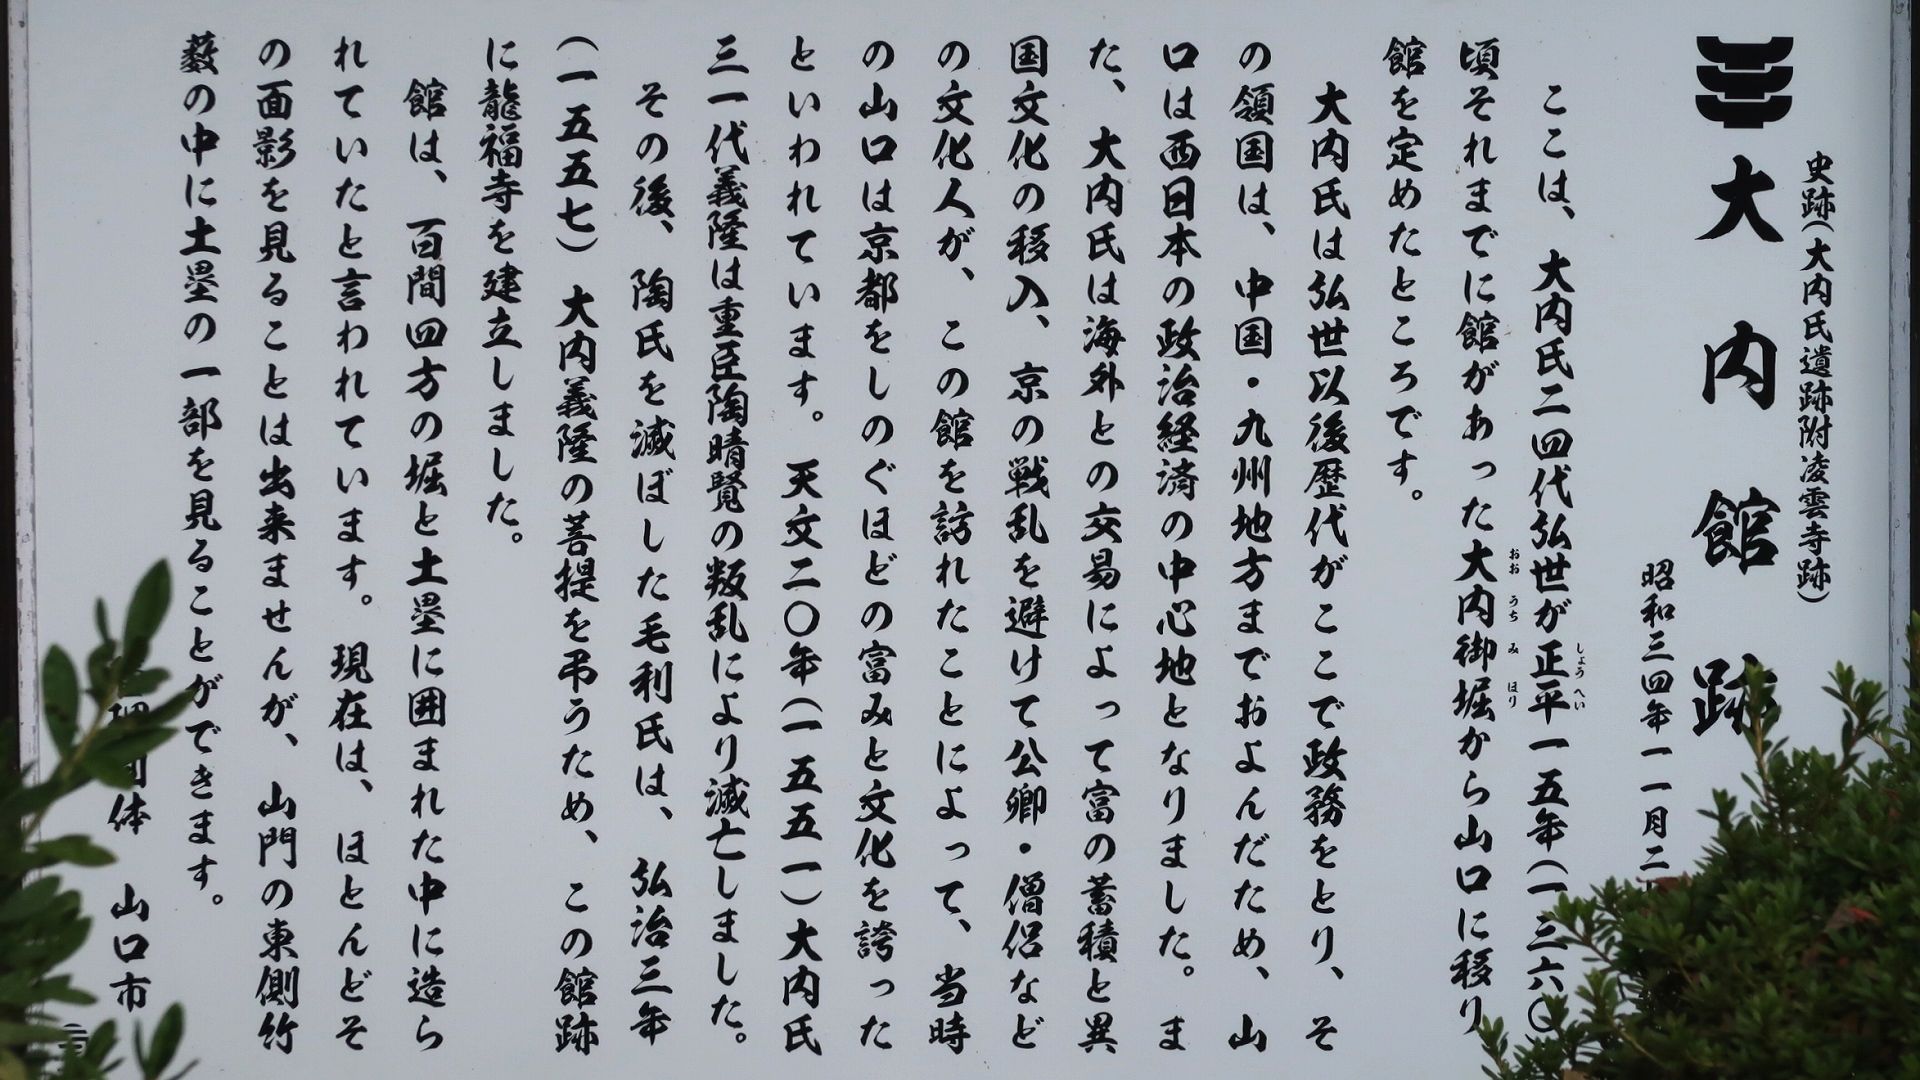 史跡(大内氏遺跡附凌雲寺跡)
大内館跡
昭和三四年一一月二
ここは、大内氏二四代弘世が正平一五年(一三六〇)
しょうへい
頃それまでに館があった大内御堀から山口に移り
おおうちみほり
館を定めたところです。
大内氏は弘世以後歴代がここで政務をとり、そ
の領国は、中国・九州地方までおよんだため、山
口は西日本の政治経済の中心地となりました。ま
た、大内氏は海外との交易によって富の蓄積と異
国文化の移入、京の戦乱を避けて公卿・僧侶など
の文化人が、この館を訪れたことによって、当時
の山口は京都をしのぐほどの富みと文化を誇った
といわれています。天文二〇年(一五五一)大内氏
三一代義隆は重臣陶晴賢の叛乱により滅亡しました。
その後、陶氏を滅ぼした毛利氏は、弘治三年
(一五五七)大内義隆の菩提を弔うため、この館跡
に龍福寺を建立しました。
館は、百間四方の堀と土塁に囲まれた中に造ら
れていたと言われています。現在は、ほとんどそ
の面影を見ることは出来ませんが、山門の東側竹
薮の中に土塁の一部を見ることができます。
団体 山口市